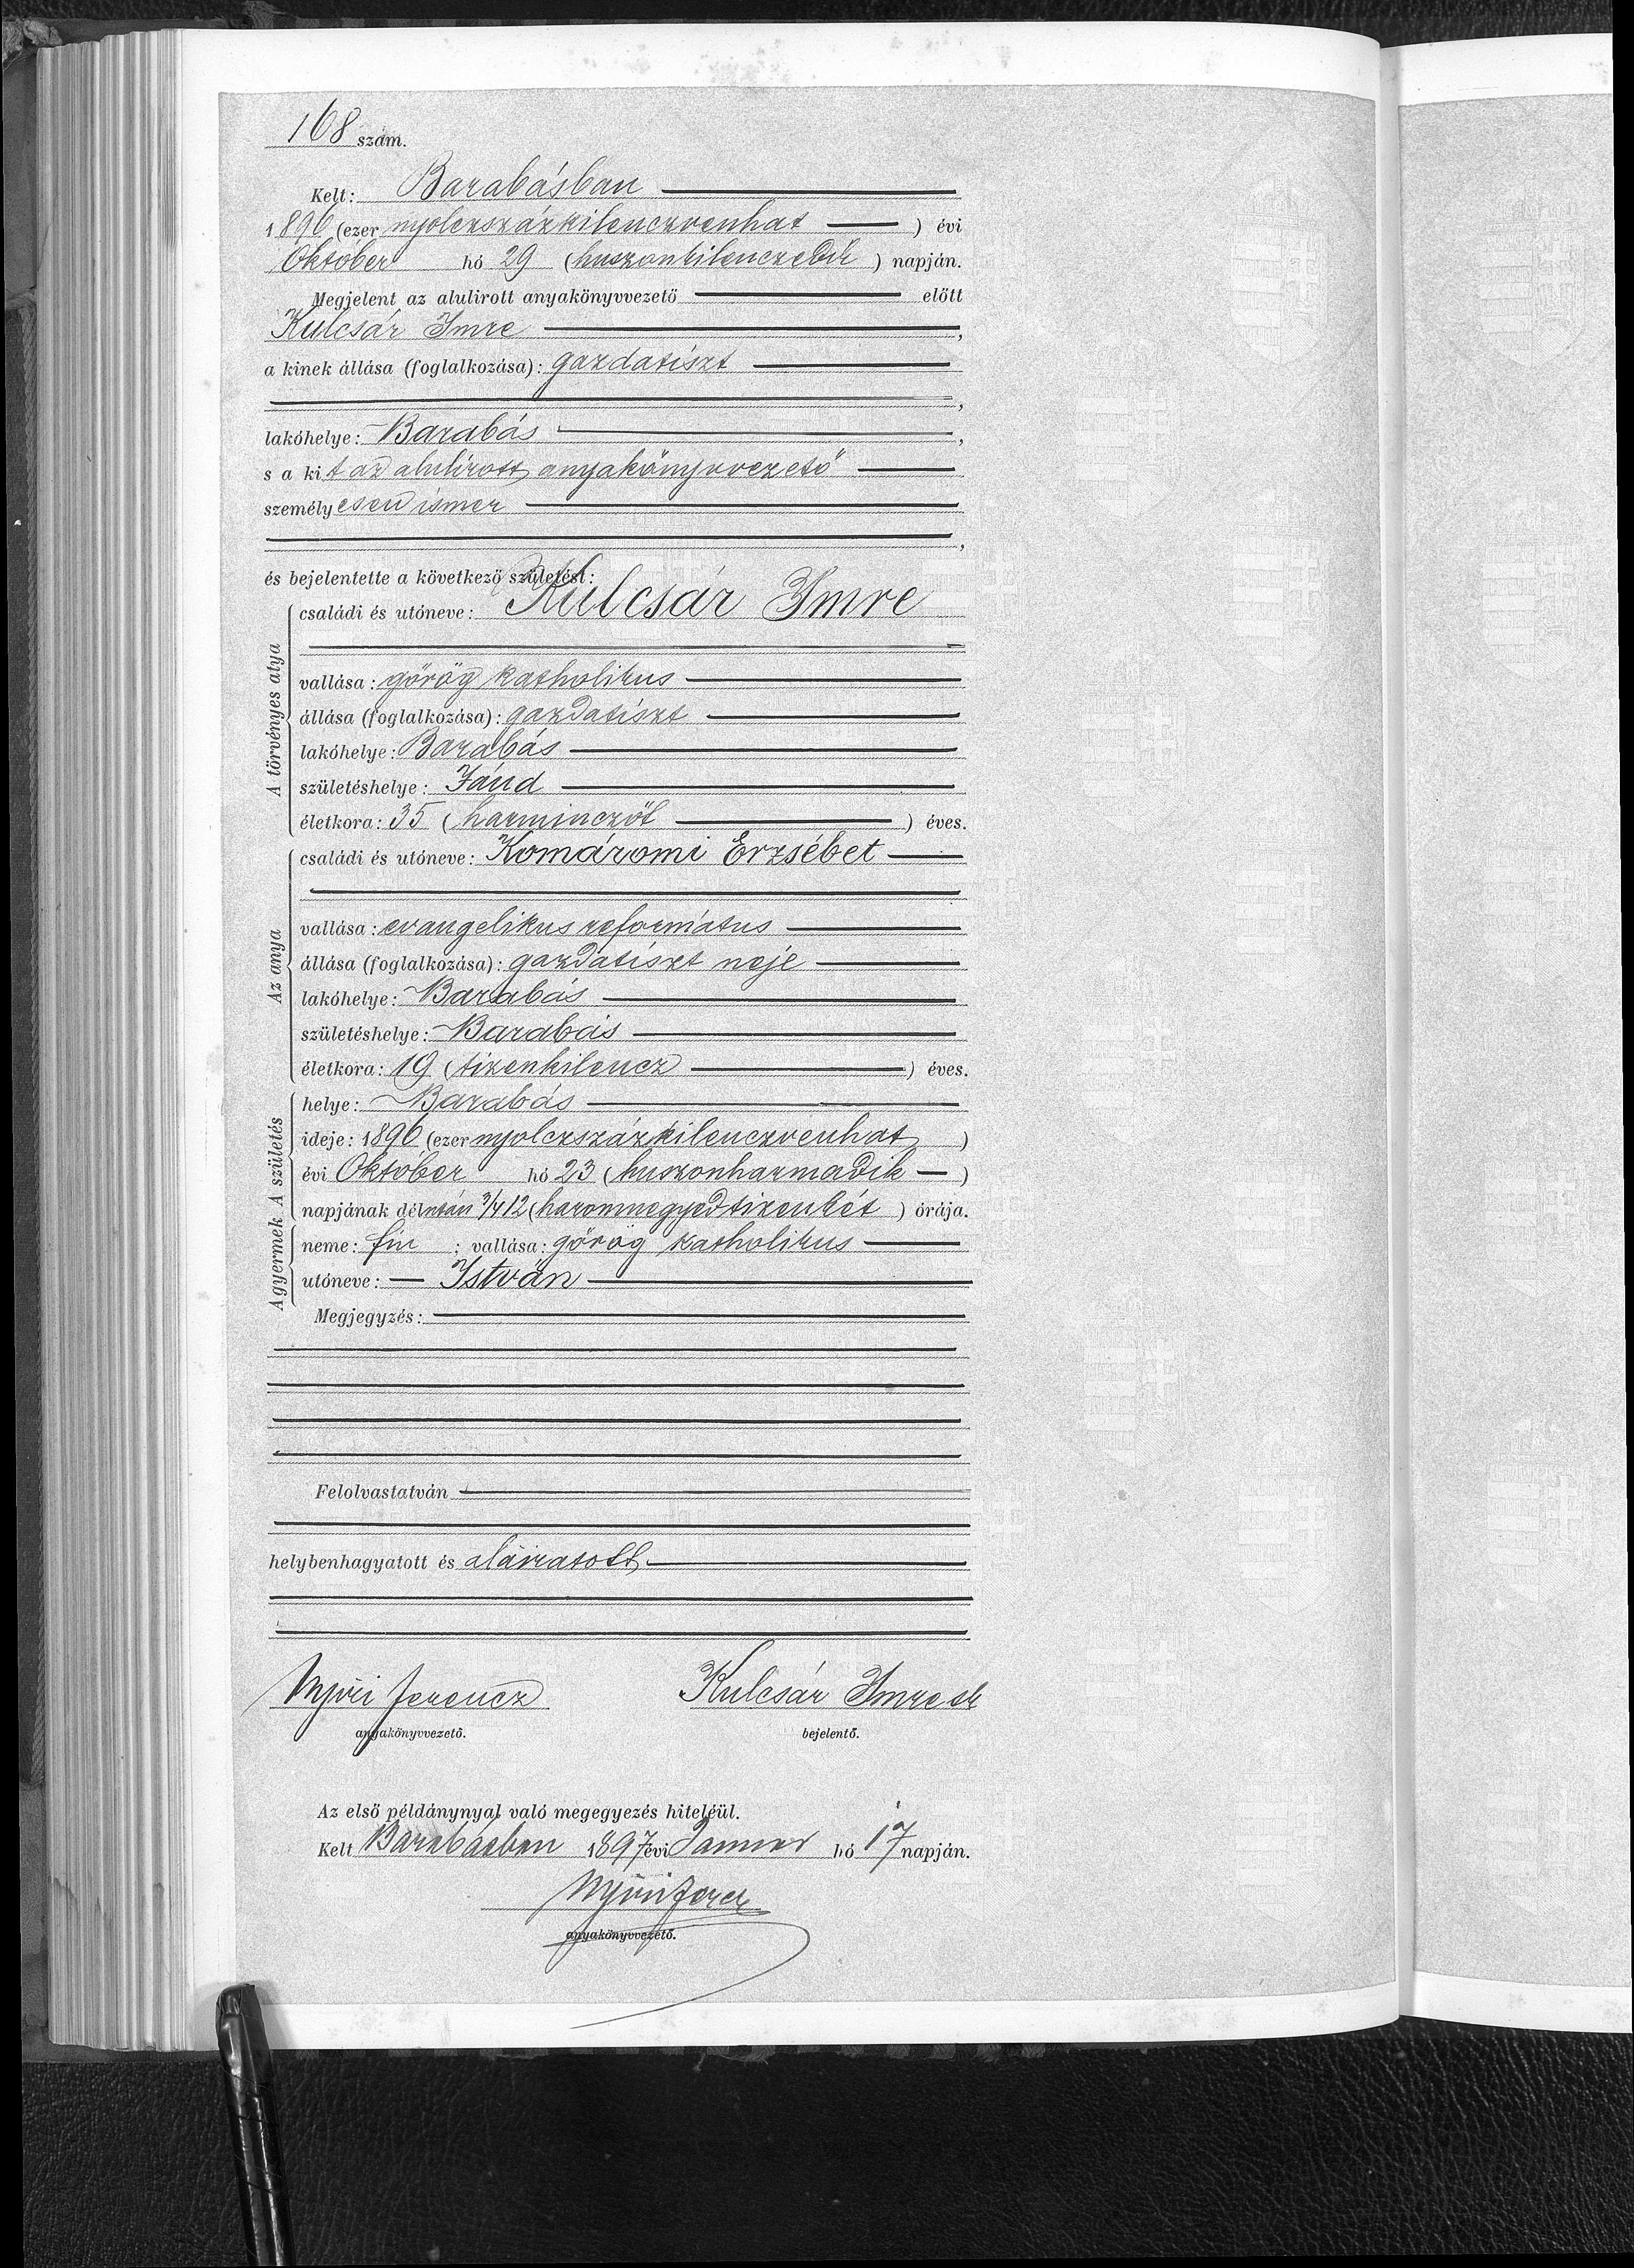 168 szám.
Kelt: Barabásban
1896 (ezer nyolczszázkilenczvenhat ) évi
Október hó 29 (huszonkilenczedik ) napján.
Megjelent az alulirott anyakönyvvezető előtt
Kulcsár Imre ,
a kinek állása (foglalkozása): gazdatiszt
,
lakóhelye: Barabás ,
s a kit az alulírott anyakönyvvezető
személyesen ismer
,
és bejelentette a következő születést:
A törvényes atya
családi és utóneve: Kulcsár Imre
vallása: görög katholikus
állása (foglalkozása): gazdatiszt
lakóhelye: Barabás
születéshelye: Jánd
életkora: 35 (harminczöt ) éves.
Az anya
családi és utóneve: Komáromi Erzsébet
vallása: evangelikus református
állása (foglalkozása): gazdatiszt neje
lakóhelye: Barabás
születéshelye: Barabás
életkora: 19 (tizenkilencz ) éves.
A születés
helye: Barabás
ideje: 1896 (ezer nyolczszázkilenczvenhat )
évi Október hó 23 (huszonharmadik )
napjának délután 3/4 12 (haromnegyedtizenkét ) órája.
A gyermek
neme: fiu ; vallása: görög katholikus
utóneve: István
Megjegyzés:
Felolvastatván
helybenhagyatott és aláiratott
Nyiri Ferencz Kulcsár Imre sk
anyakönyvvezető. bejelentő.
Az első példánynyal való megegyezés hiteléül.
Kelt Barabásban 1897 évi Januar hó 17 napján.
Nyiri Ferencz
anyakönyvvezető.